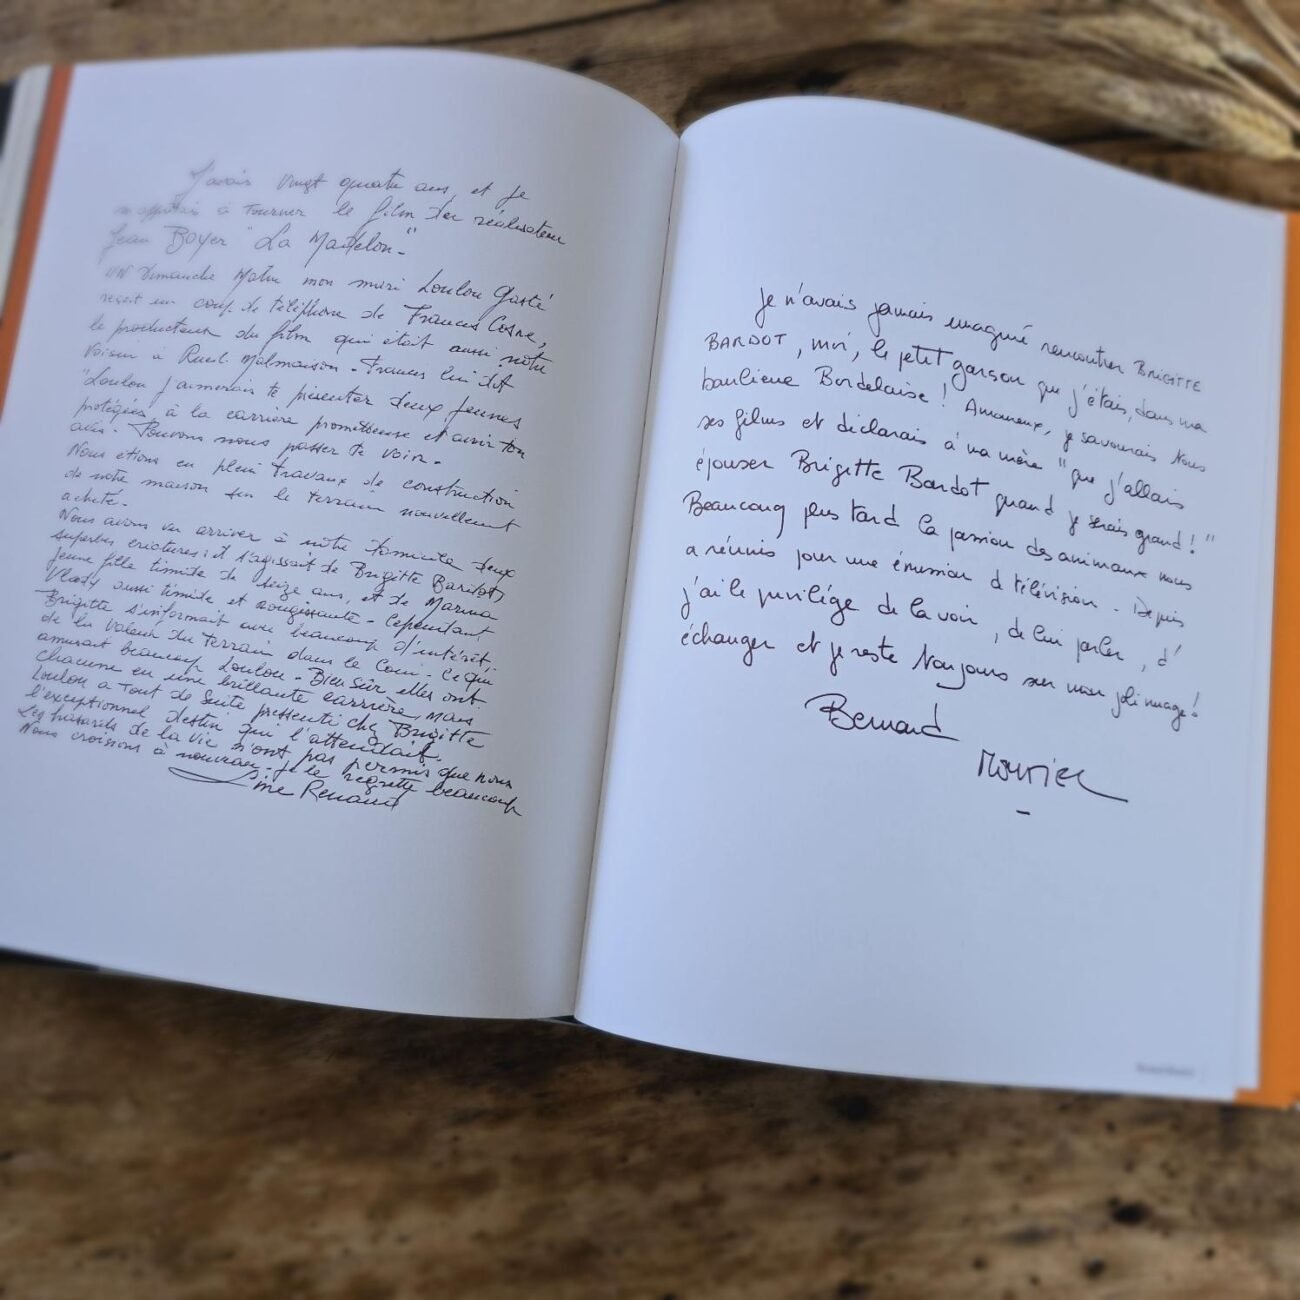 J'avais vingt quatre ans, et je
m'apprêtais à tourner le film du réalisateur
Jean BOYER "La Madelon"
UN Dimanche Matin mon mari Loulou Gasté
reçoit un coup de téléphone de Francis Cosne,
le producteur du film qui était aussi notre
voisin à Rueil Malmaison - Francis lui dit
"Loulou j'aimerais te présenter deux jeunes
protégées, à la carrière prometteuse et avoir ton
avis. Pouvons nous passer te voir -
Nous étions en plein travaux de construction
de notre maison sur le terrain nouvellement
acheté.
Nous avons vu arriver à notre domicile deux
superbes créatures : il s'agissait de Brigitte Bardot,
jeune fille timide de seize ans, et de Marina
Vlady aussi timide et rougissante - Cependant
Brigitte s'informait avec beaucoup d'intérêt,
de la valeur du terrain dans le coin - Ce qui
amusait beaucoup Loulou - Bien sûr elles ont
chacune eu une brillante carrière mais
Loulou a tout de suite pressenti chez Brigitte
l'exceptionnel destin qui l'attendait.
Les hasards de la vie n'ont pas permis que nous
Nous croisions à nouveau - je le regrette beaucoup
Line Renaud
Je n'avais jamais imaginé rencontrer BRIGITTE
BARDOT, moi, le petit garson que j'étais, dans ma
banlieue Bordelaise ! Amoureux, je savourais tous
ses films et déclarais à ma mère "que j'allais
épouser Brigitte Bardot quand je serais grand !"
Beaucoup plus tard la passion des animaux nous
a réunis pour une émission d télévision - Depuis
j'ai le privilége de la voir, de lui parler, d'
échanger et je reste toujours sur mon joli nuage !
Bernard
Montiel